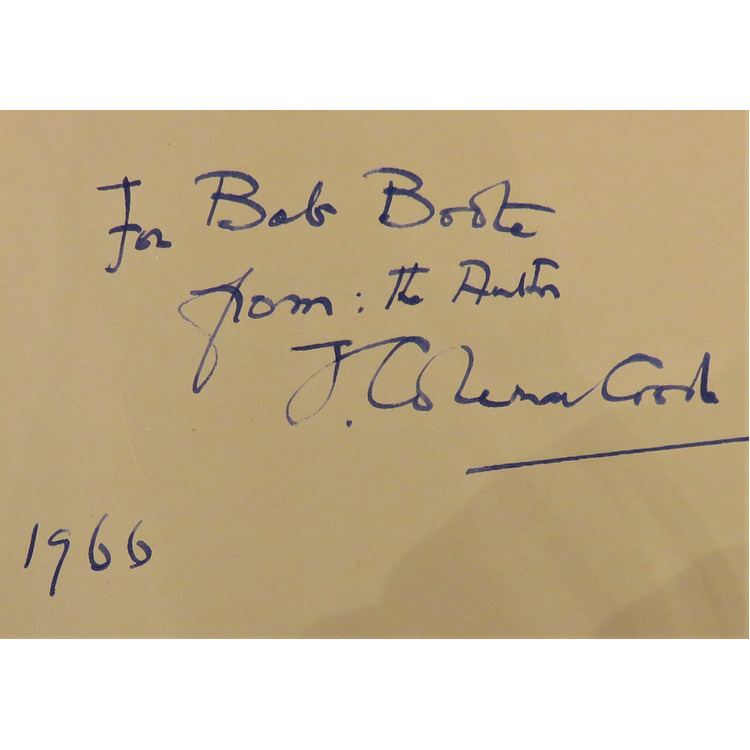 For Bob Boote
from: the Author
J. Coleman Cooke
1966